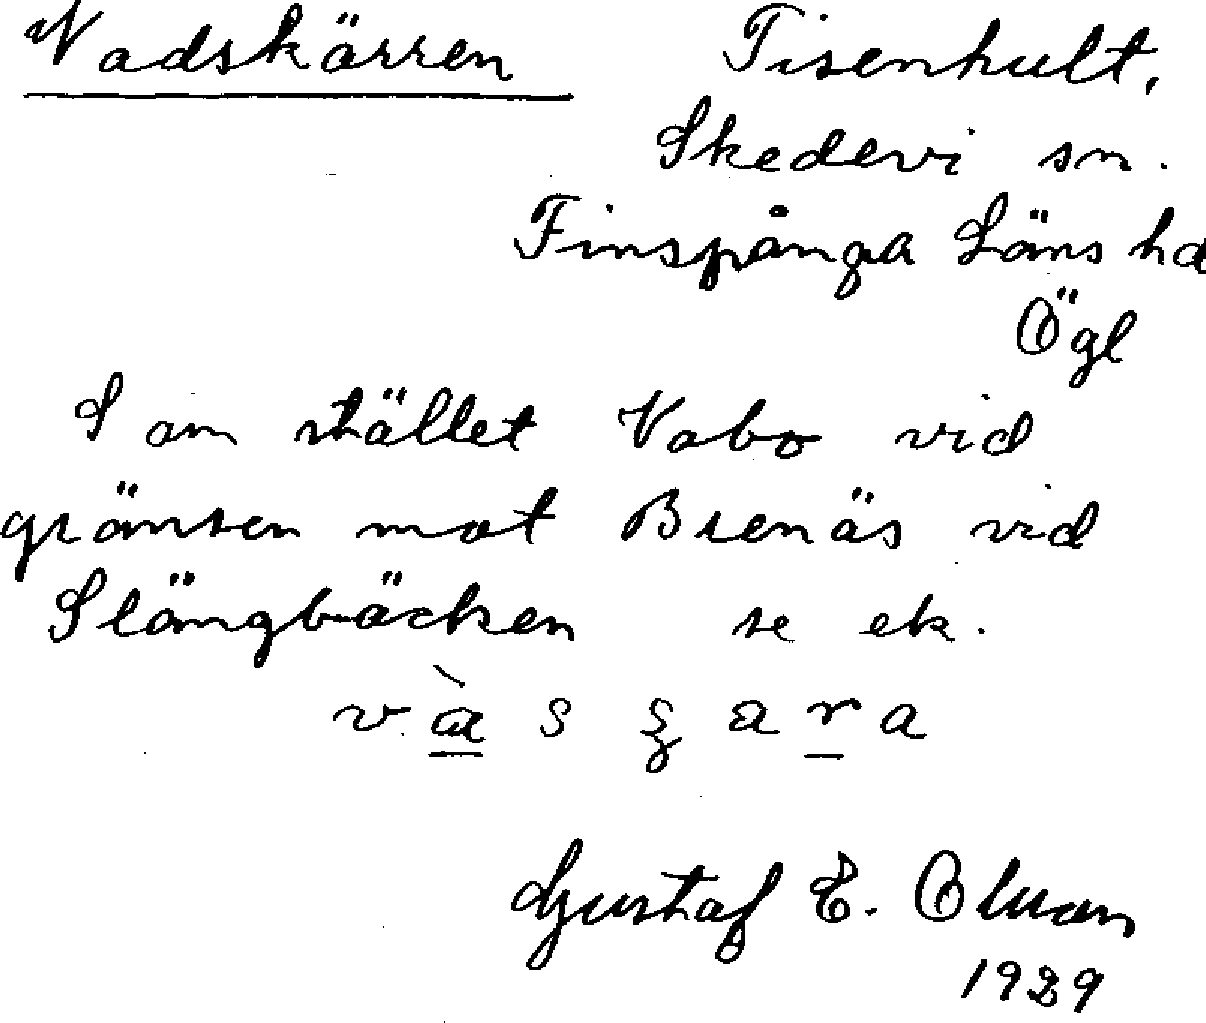 Vadskärren Tisenhult,
Skedevi sn.
Finspånga Läns hd
Ögl
S om stället Vabo vid
gränsen mot Brenäs vid
Slängbäcken se ek.
Gustaf E. Olson
1929